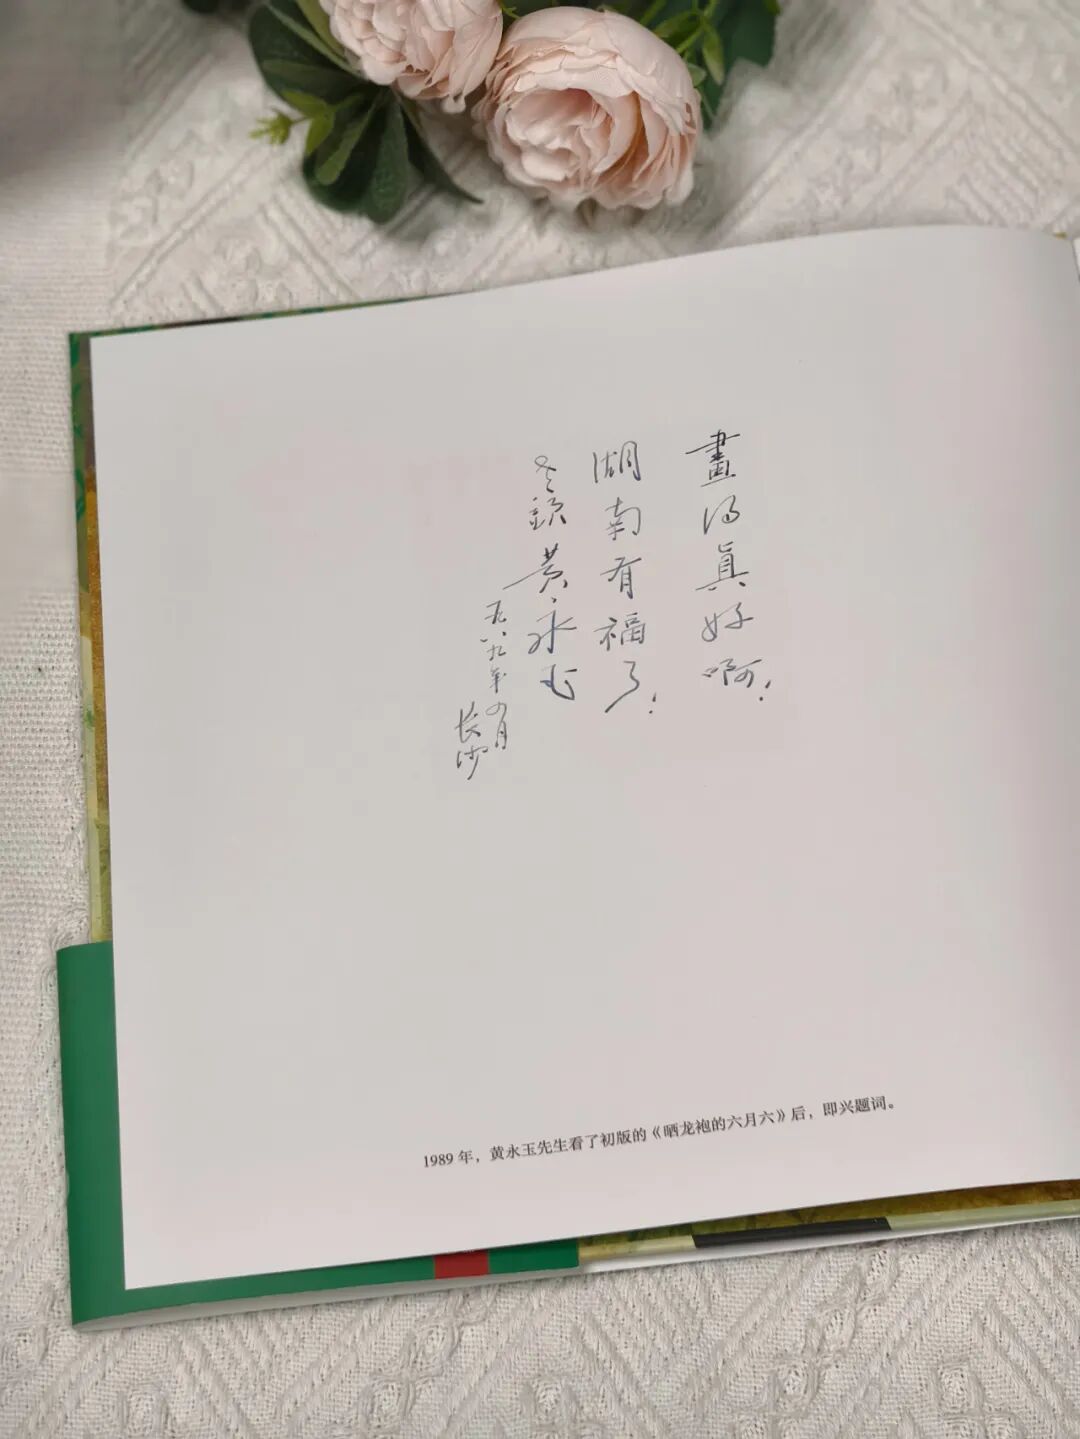 畫得眞好啊!
湖南有福了!
老頭黄永玉
一九八九年四月
长沙
1989 年，黄永玉先生看了初版的《晒龙袍的六月六》后，即兴题词。